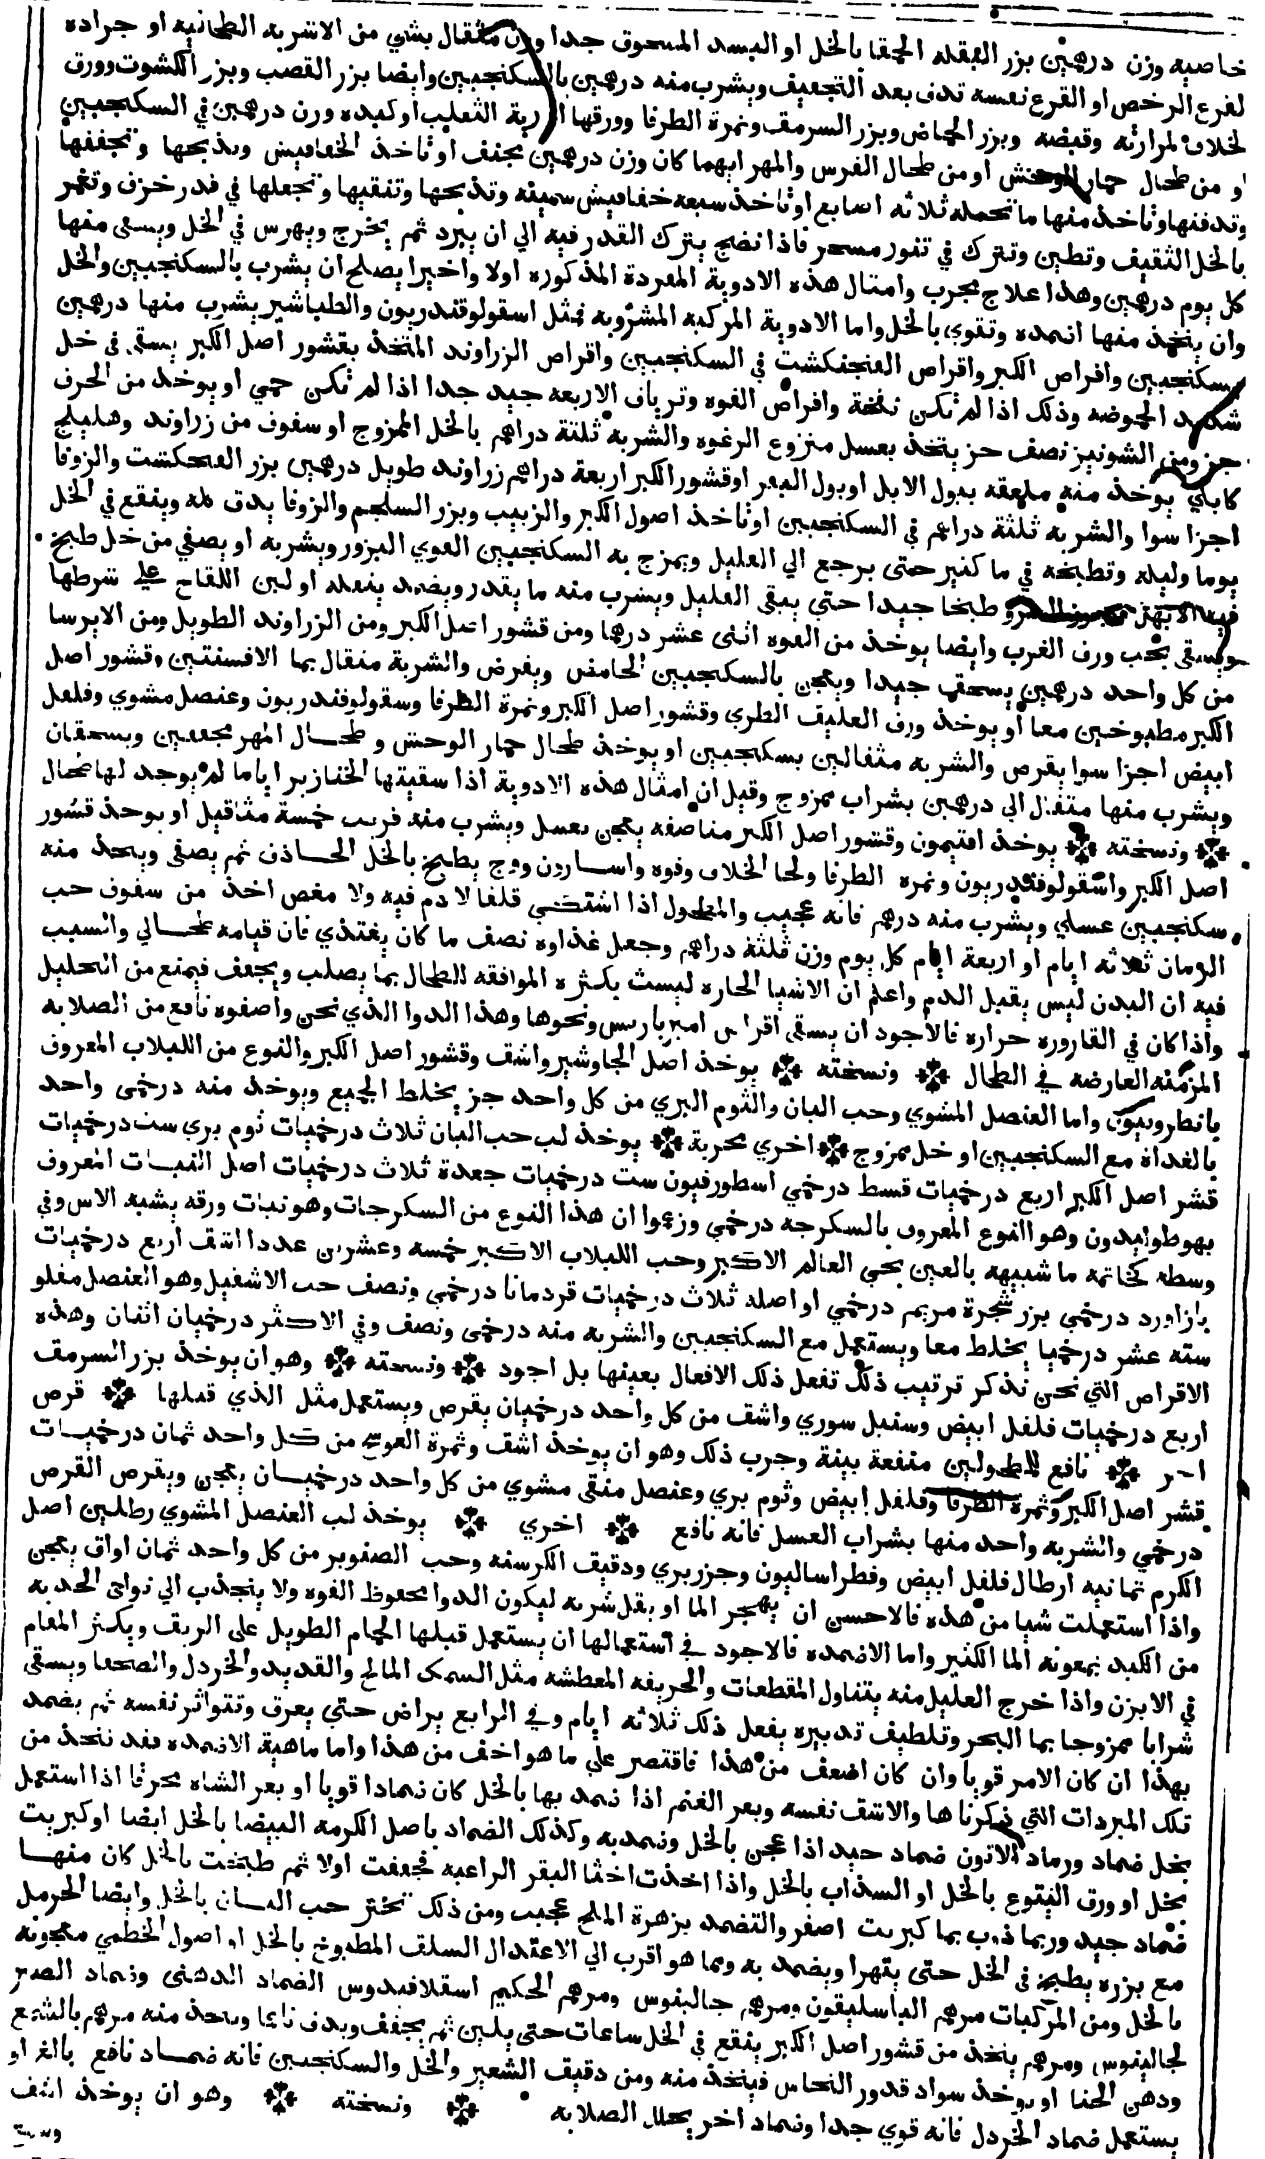 خاصيه وزن درهمين بزر البقله الحمقا بالخل او البسد المسحوق جدا وزن مثقال بشي من الاشربه الطحاليه او جراده
لقرع الرخص او القرع نفسه تدق بعد التجفيف ويشرب منه درهمين بالسكنجبين وايضا بزر القصب وبزر الكشوث وورق
لخلاف لمرارته وقبضه وبزر الحماض وبزر السرمق وثمرة الطرفا وورقها او رية الثعلب او كبده وزن درهمين في السكنجبين
او من طحال حمار الوحش او من طحال الفرس والمهر ايهما كان وزن درهمين مجفف او تاخذ الخفافيش وتذبحها وتجففها
وتدقها وتاخذ منها ما تحمله ثلاثه اصابع او تاخذ سبعه خفافيش سمينه وتذبحها وتنقيها وتجعلها في قدر خزف وتغمر
بالخل الثقيف وتطين وتترك في تنور مسجر فاذا نضج يترك القدر فيه الي ان يبرد ثم يخرج ويهرس في الخل ويسقي منها
كل يوم درهمين وهذا علاج مجرب وامثال هذه الادوية المفردة المذكوره اولا واخيرا يصلح ان يشرب بالسكنجبين والخل
وان يتخذ منها اضمده وتقوي بالخل واما الادوية المركبه المشروبه فمثل اسقولوقندريون والطباشير يشرب منها درهمين
بسكنجبين واقراص الكبر واقراص الفنجنكشت في السكنجبين واقراص الزراوند المتخذ بقشور اصل الكبر يسقي في خل
شديد الحموضه وذلك اذا لم تكن نفخة واقراص الفوه وترياق الاربعه جيد جدا اذا لم تكن حمي او يوخذ من الحرف
جز ومن الشونيز نصف جز يتخذ بعسل منزوع الرغوه والشربه ثلثة دراهم بالخل الممزوج او سفوف من زراوند وهليلج
كابلي يوخذ منه ملعقه ببول الابل او بول البقر او قشور الكبر اربعة دراهم زراوند طويل درهمين بزر الفنجكشت والزوفا
اجزا سوا والشربه ثلثة دراهم في السكنجبين او تاخذ اصول الكبر والزبيب وبزر السلجم والزوفا يدق كله وينقع في الخل
يوما وليله وتطبخه في ما كثير حتي يرجع الي القليل ويمزج به السكنجبين القوي البزور ويشربه او يصفي من خل طبخ
فيه الابهل طبخا جيدا حتي يبقي القليل ويشرب منه ما يقدر ويضمد بثفله او لبن اللقاح علي شرطها
ويسقي بحب ورق الغرب وايضا يوخذ من الفوه اثني عشر درهما ومن قشور اصل الكبر ومن الزراوند الطويل ومن الايرسا
من كل واحد درهمين يسحق جيدا ويعجن بالسكنجبين الحامض ويقرص والشربة مثقال بما الافسنتين وقشور اصل
الكبر مطبوخين معا او يوخذ ورق العليق الطري وقشور اصل الكبر وثمرة الطرفا وسقولوقندريون وعنصل مشوي وفلفل
ابيض اجزا سوا يقرص والشربه مثقالين بسكنجبين او يوخذ طحال حمار الوحش وطحال المهر مجففين ويسحقان
ويشرب منها مثقال الي درهمين بشراب ممزوج وقيل ان امثال هذه الادوية اذا سقيتها الخنازير اياما لم يوجد لها طحال
ونسخته يوخذ افتيمون وقشور اصل الكبر مناصفه يعجن بعسل ويشرب منه قريب خمسة مثاقيل او يوخذ قشور
اصل الكبر واسقولوقندريون وثمره الطرفا ولحا الخلاف وفوه واسارون ووج يطبخ بالخل الحاذق ثم يصفي ويتخذ منه
سكنجبين عسلي ويشرب منه درهم فانه عجيب والمطحول اذا اشتكي قلقا لا دم فيه ولا مغص اخذ من سفوف حب
الرمان ثلاثه ايام او اربعة ايام كل يوم وزن ثلثة دراهم وجعل غذاوه نصف ما كان يغتذي فان قيامه طحالي والسبب
فيه ان البدن ليس يقبل الدم واعلم ان الاشيا الحاره ليست بكثره الموافقه للطحال بما يصلب ويجفف فيمنع من التحليل
واذا كان في القاروره حراره فالاجود ان يسقي اقراص امبرباريس ونحوها وهذا الدوا الذي نحن واصفوه نافع من الصلابه
المزمنه العارضه في الطحال ونسخته يوخذ اصل الجاوشير واشق وقشور اصل الكبر والنوع من اللبلاب المعروف
واما العنصل المشوي وحب البان والثوم البري من كل واحد جز يخلط الجميع ويوخذ منه درخمي واحد
بالغداة مع السكنجبين او خل ممزوج اخري مجربة يوخذ لب حب البان ثلاث درخميات ثوم بري ست درخميات
قشر اصل الكبر اربع درخميات قسط درخمي اسطورفيون ست درخميات جعدة ثلاث درخميات اصل النبات المعروف
بهوطوليدون وهو النوع المعروف بالسكرجه درخمي وزعموا ان هذا النوع من السكرجات وهو نبات ورقه يشبه الاس وفي
وسطه كخاتمه ما شبيهه بالعين بحي العالم الاكبر وحب اللبلاب الاكبر خمسه وعشرين عددا اشق اربع درخميات
بازاورد درخمي بزر شجرة مريم درخمي او اصله ثلاث درخميات قردمانا درخمي ونصف حب الاشقيل وهو العنصل مقلو
سته عشر درخميا يخلط معا ويستعمل مع السكنجبين والشربه منه درخمي ونصف وفي الاكثر درخميان اثنان وهذه
الاقراص التي نحن نذكر ترتيب ذلك تفعل ذلك الافعال بعينها بل اجود ونسخته وهو ان يوخذ بزر السرمق
اربع درخميات فلفل ابيض وسنبل سوري واشق من كل واحد درخميان يقرص ويستعمل مثل الذي قبلها قرص
اخر نافع للمطحولين منفعة بينة وجرب ذلك وهو ان يوخذ اشق وثمرة العوسج من كل واحد ثمان درخميات
قشر اصل الكبر وثمرة الطرفا وفلفل ابيض وثوم بري وعنصل منقي مشوي من كل واحد درخميان يعجن ويقرص القرص
درخمي والشربه واحد منها بشراب العسل فانه نافع اخري يوخذ لب العنصل المشوي رطلين اصل
الكرم ثمانيه ارطال فلفل ابيض وفطراساليون وجزر بري ودقيق الكرسنه وحب الصنوبر من كل واحد ثمان اواق يعجن
واذا استعملت شيا من هذه فالاحسن ان يهجر الما او يقل شربه ليكون الدوا محفوظ القوه ولا ينجذب الي نواحي الحدبه
من الكبد بمعونه الما الكثير واما الاضمده فالاجود في استعمالها ان يستعمل قبلها الحمام الطويل علي الريق ويكثر المقام
في الابزن واذا خرج العليل منه يتناول المقطعات والحريفه المعطشه مثل السمك المالح والقديد والخردل والصحنا ويسقي
شرابا ممزوجا بما البحر وتلطيف تدبيره يفعل ذلك ثلاثه ايام وفي الرابع يراض حتي يعرق وتتواتر نفسه ثم يضمد
بهذا ان كان الامر قويا وان كان اضعف من هذا فاقتصر علي ما هو اخف من هذا واما ماهية الاضمده فقد تتخذ من
تلك المبردات التي ذكرناها والاشق نفسه وبعر الغنم اذا ضمد بها بالخل كان ضمادا قويا او بعر الشاه محرقا اذا استعمل
بخل ضماد ورماد الاتون ضماد جيد اذا عجن بالخل وضمد به وكذلك الضماد باصل الكرمه البيضا بالخل ايضا او كبريت
بخل او ورق اليتوع بالخل او السذاب بالخل واذا اخذت اخثا البقر الراعيه فجففت اولا ثم طبخت بالخل كان منها
ضماد جيد وربما ذوب بما كبريت اصفر والتضمد بزهرة الملح عجيب ومن ذلك حب البان بالخل وايضا الحرمل
مع بزره يطبخ في الخل حتي يتهرا ويضمد به ومما هو اقرب الي الاعتدال السلق المطبوخ بالخل او اصول الخطمي معجونه
بالخل ومن المركبات مرهم الباسليقون ومرهم جالينوس ومرهم الحكيم اسقلافيدوس الضماد الدهني وضماد الصبر
لجالينوس ومرهم يتخذ من قشور اصل الكبر ينقع في الخل ساعات حتي يلين ثم يجفف ويدق ناعما ويتخذ منه مرهم بالشمع
ودهن الحنا او يوخذ سواد قدور النحاس فيتخذ منه ومن دقيق الشعير والخل والسكنجبين فانه ضماد نافع بالغ او
يستعمل ضماد الخردل فانه قوي جدا وضماد اخر يحلل الصلابه ونسخته وهو ان يوخذ اشق